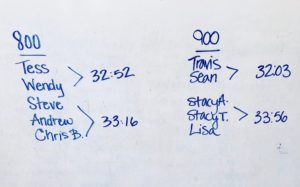 800
Tess
Wendy > 32:52
Steve
Andrew > 33:16
Chris B.
900
Travis
Sean > 32:03
Stacy A.
Stacy T. > 33:56
Lisa